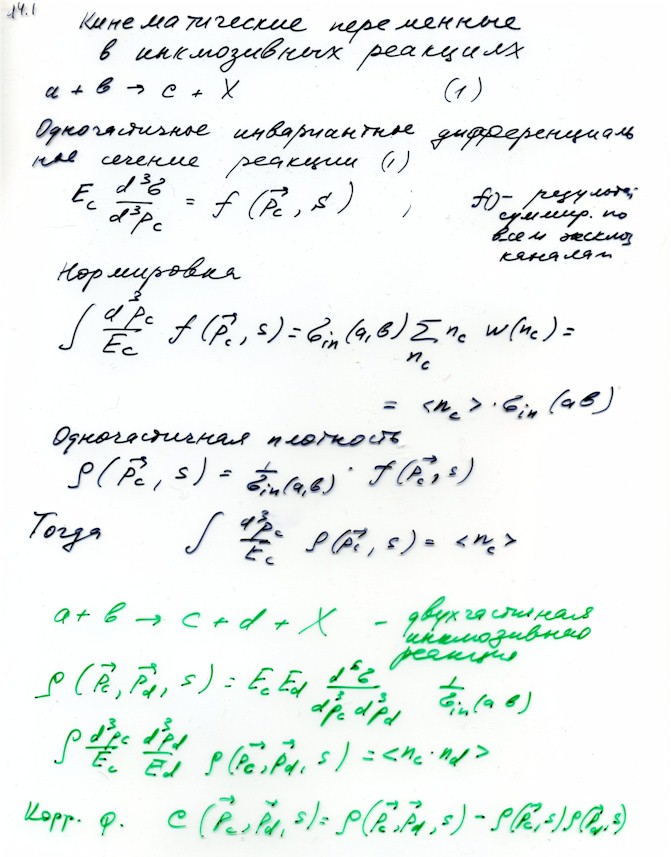 14.1
Кинематические переменные
в инклюзивных реакциях
a + b → c + X (1)
Одночастичное инвариантное дифференциаль
ное сечение реакции (1)
E_c d³σ/d³p_c = f(p⃗_c, s) ;
f() – результ.
суммир. по
всем эксклюз
каналам
Нормировка
∫ d³p_c/E_c f(p⃗_c, s) = σ_in(a,b) Σ_{n_c} n_c w(n_c) =
= <n_c>·σ_in(ab)
Одночастичная плотность
ρ(p⃗_c, s) = 1/σ_in(a,b) · f(p⃗_c, s)
Тогда ∫ d³p_c/E_c ρ(p⃗_c, s) = <n_c>
a + b → c + d + X – двухчастичная
инклюзивная
реакция
ρ(p⃗_c, p⃗_d, s) = E_c E_d d⁶σ/d³p_c d³p_d 1/σ_in(ab)
∫ d³p_c/E_c d³p_d/E_d ρ(p⃗_c, p⃗_d, s) = <n_c·n_d>
Корр. ф. c(p⃗_c, p⃗_d, s) = ρ(p⃗_c, p⃗_d, s) – ρ(p⃗_c, s)ρ(p⃗_d, s)